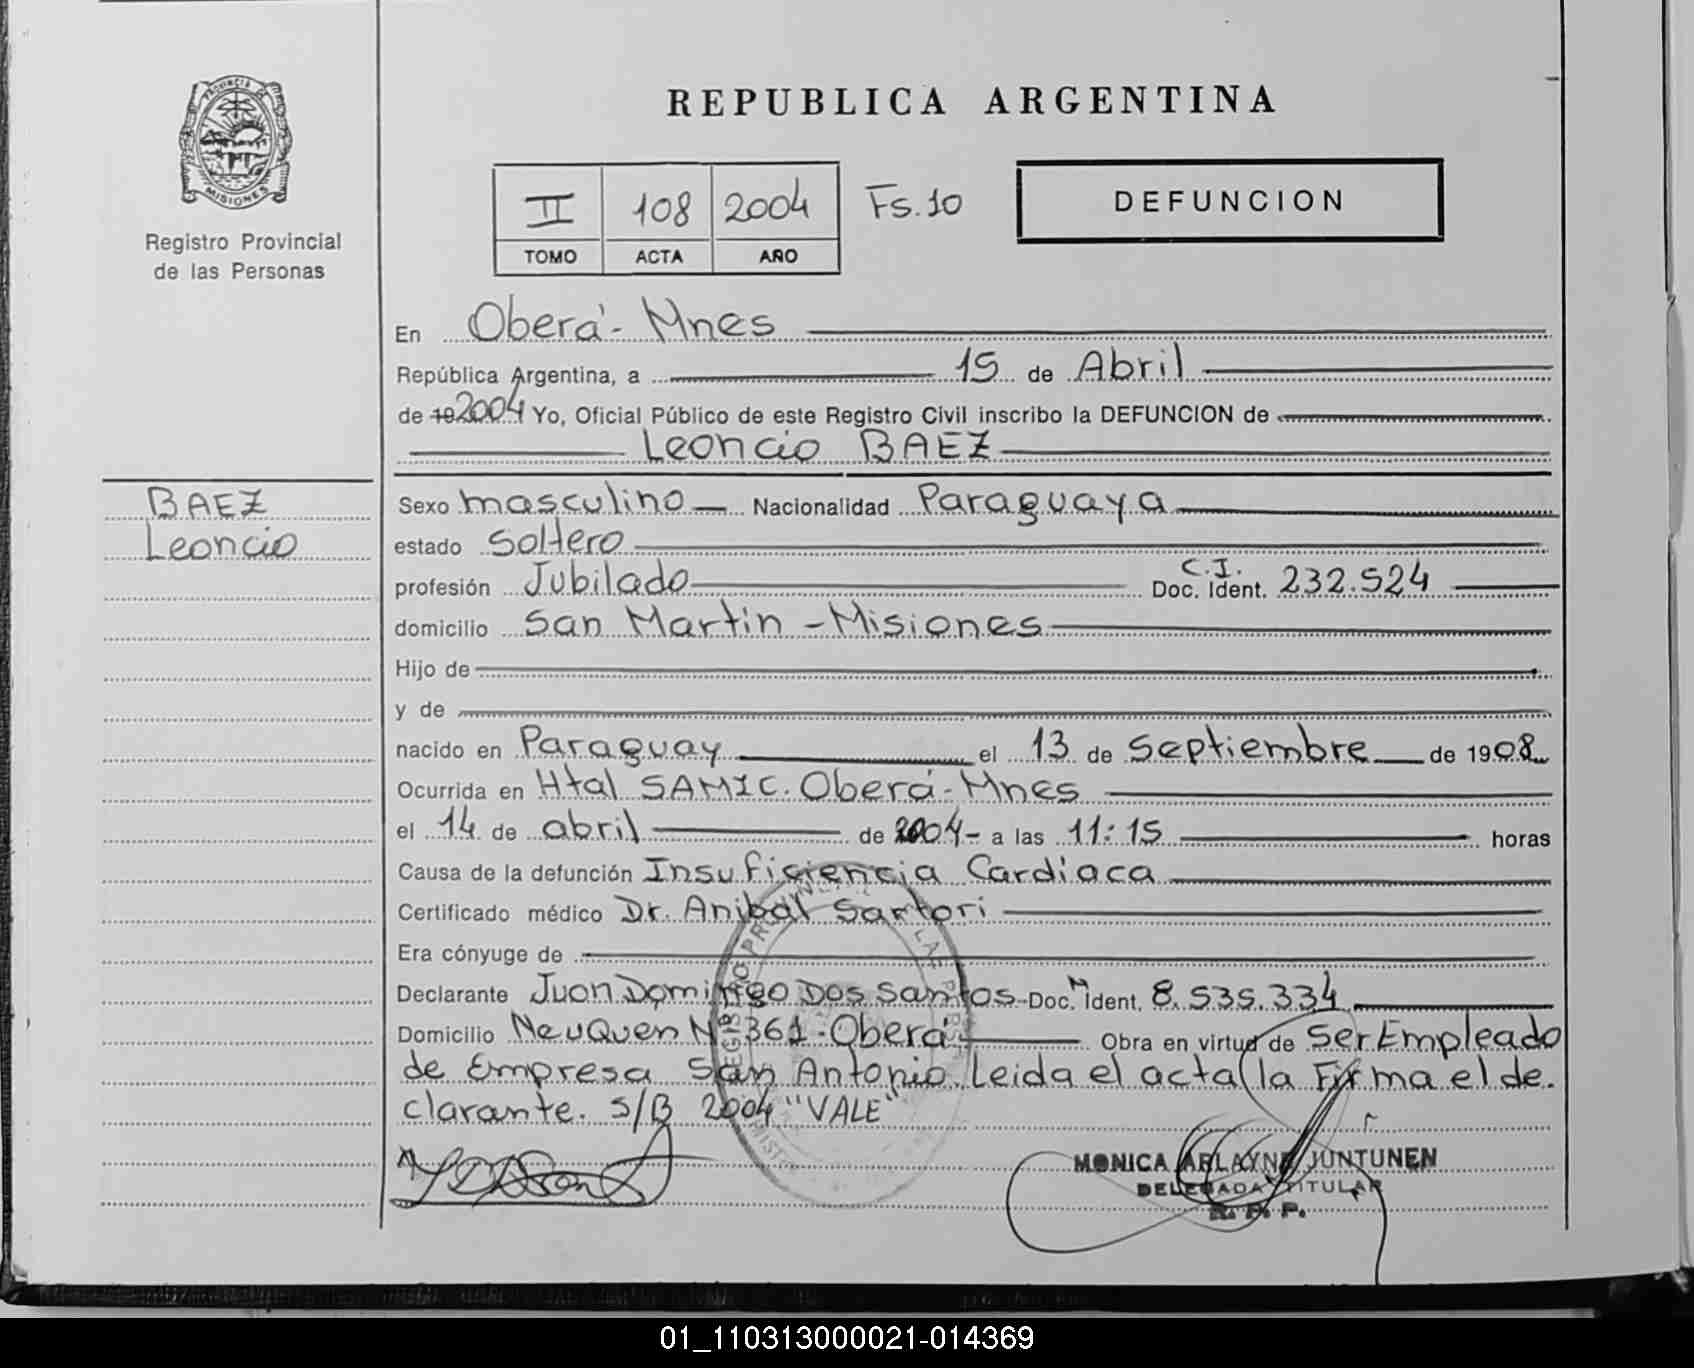 PROVINCIA DE
MISIONES
Registro Provincial
de las Personas
REPUBLICA ARGENTINA
II 108 2004 Fs. 10
TOMO ACTA AÑO
DEFUNCION
En Oberá - Mnes
República Argentina, a 15 de Abril
de 19 2004 Yo, Oficial Público de este Registro Civil inscribo la DEFUNCION de
Leoncio BAEZ
BAEZ
Leoncio
Sexo masculino Nacionalidad Paraguaya
estado Soltero
profesión Jubilado C.I. Doc. Ident. 232.524
domicilio San Martín - Misiones
Hijo de
y de
nacido en Paraguay el 13 de Septiembre de 1908
Ocurrida en Htal SAMIC. Oberá - Mnes
el 14 de abril de 2004 - a las 11:15 horas
Causa de la defunción Insuficiencia Cardíaca
Certificado médico Dr. Anibal Sartori
Era cónyuge de
Declarante Juan Domingo Dos Santos - Doc. M Ident. 8.535.334
Domicilio Neuquen Nº 361 - Oberá Obra en virtud de Ser Empleado
de Empresa San Antonio Leida el acta la Firma el de.
clarante. S/B 2004 "VALE"
MONICA ARLAYNE JUNTUNEN
DELEGADA TITULAR
R. P. P.
01_110313000021-014369